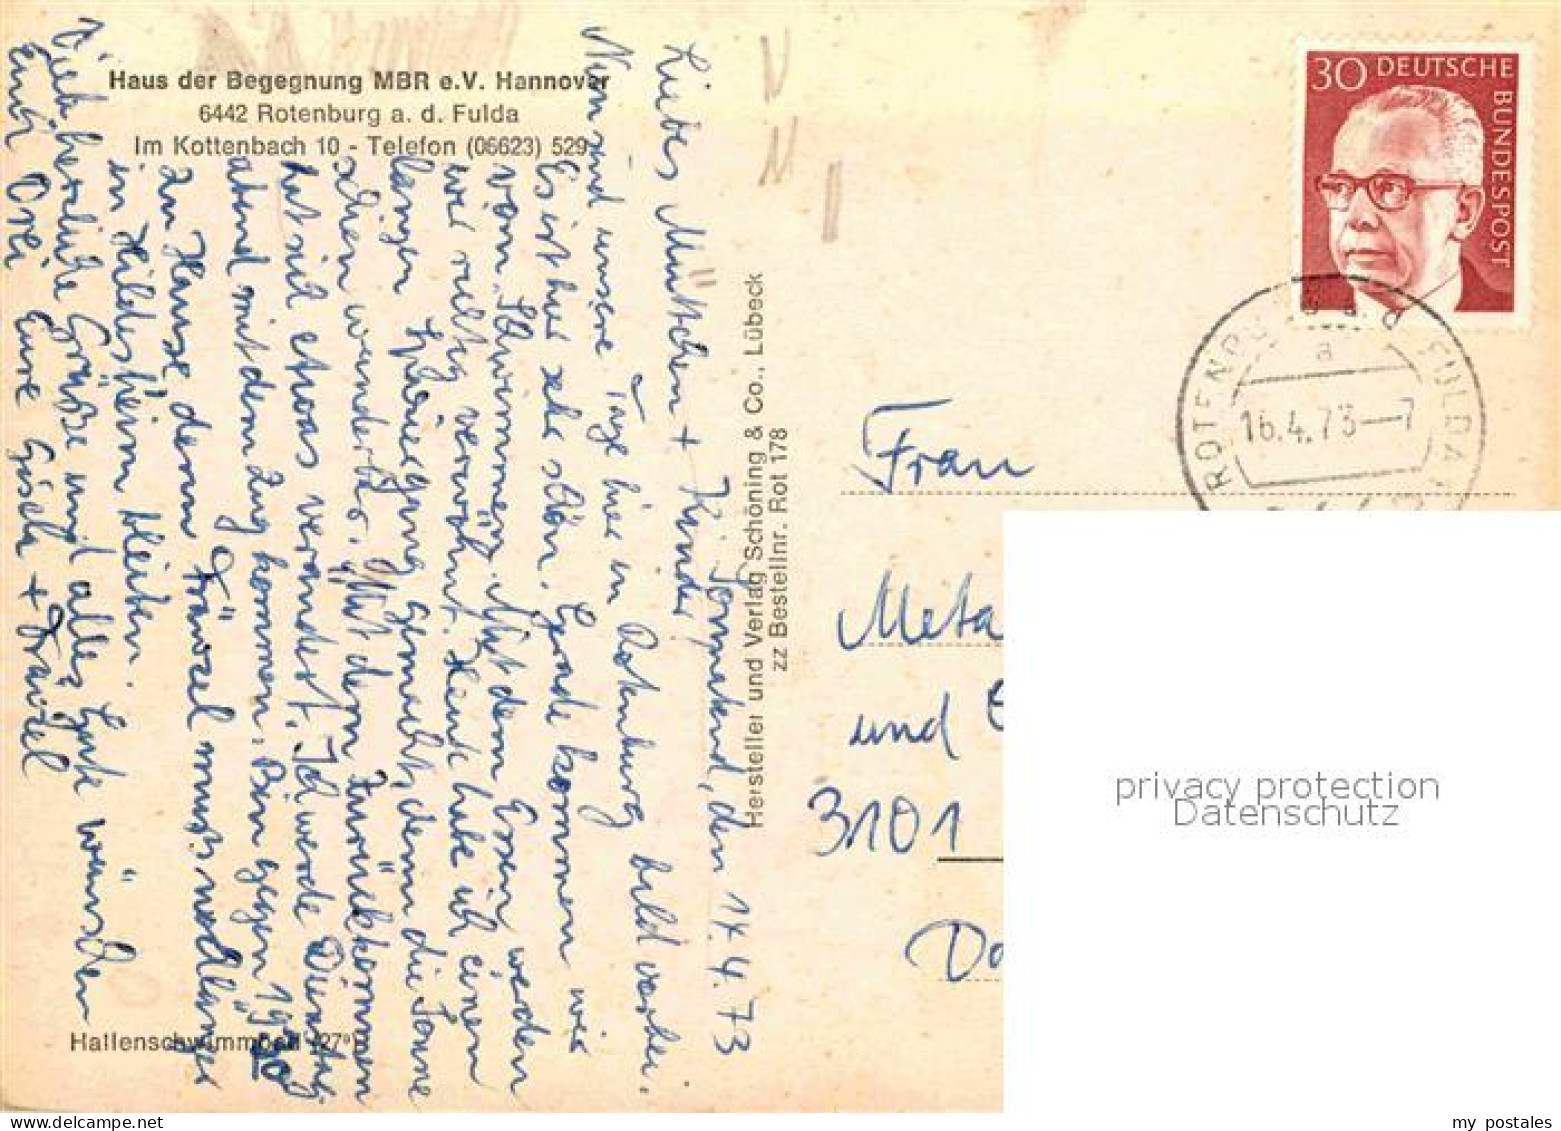 Haus der Begegnung MBR e.V. Hannover
6442 Rotenburg a. d. Fulda
Im Kottenbach 10 - Telefon (06623) 529
Sonnabend, den 14.4.73
Liebes Muttchen + Kinder!
Nun sind unsere Tage hier in Rotenburg bald vorbei.
Es ist hier sehr schön. Gerade kommen wir
vom Schwimmen. Mit dem Essen werden
wir richtig verwöhnt. Heute habe ich einen
langen Spaziergang gemacht, denn die Sonne
schien wunderbar. Mit dem Zurückkommen
hat sich etwas verändert. Ich werde Dienstag
abend mit dem Zug kommen. Bin gegen 19
zu Hause denn Fränzel muß noch länger
in Hildesheim bleiben.
Viele herzliche Grüße und alles Gute wünschen
Euch Drei Eure Gisela + Fränzel
Hallenschwimmbad (27°)
Hersteller und Verlag Schöning & Co., Lübeck
zz Bestellnr. Rot 178
30 DEUTSCHE BUNDESPOST
ROTENBURG A. D. FULDA
a
16.4.73—7
Frau
Meta
und
3101
privacy protection
Datenschutz
my postales